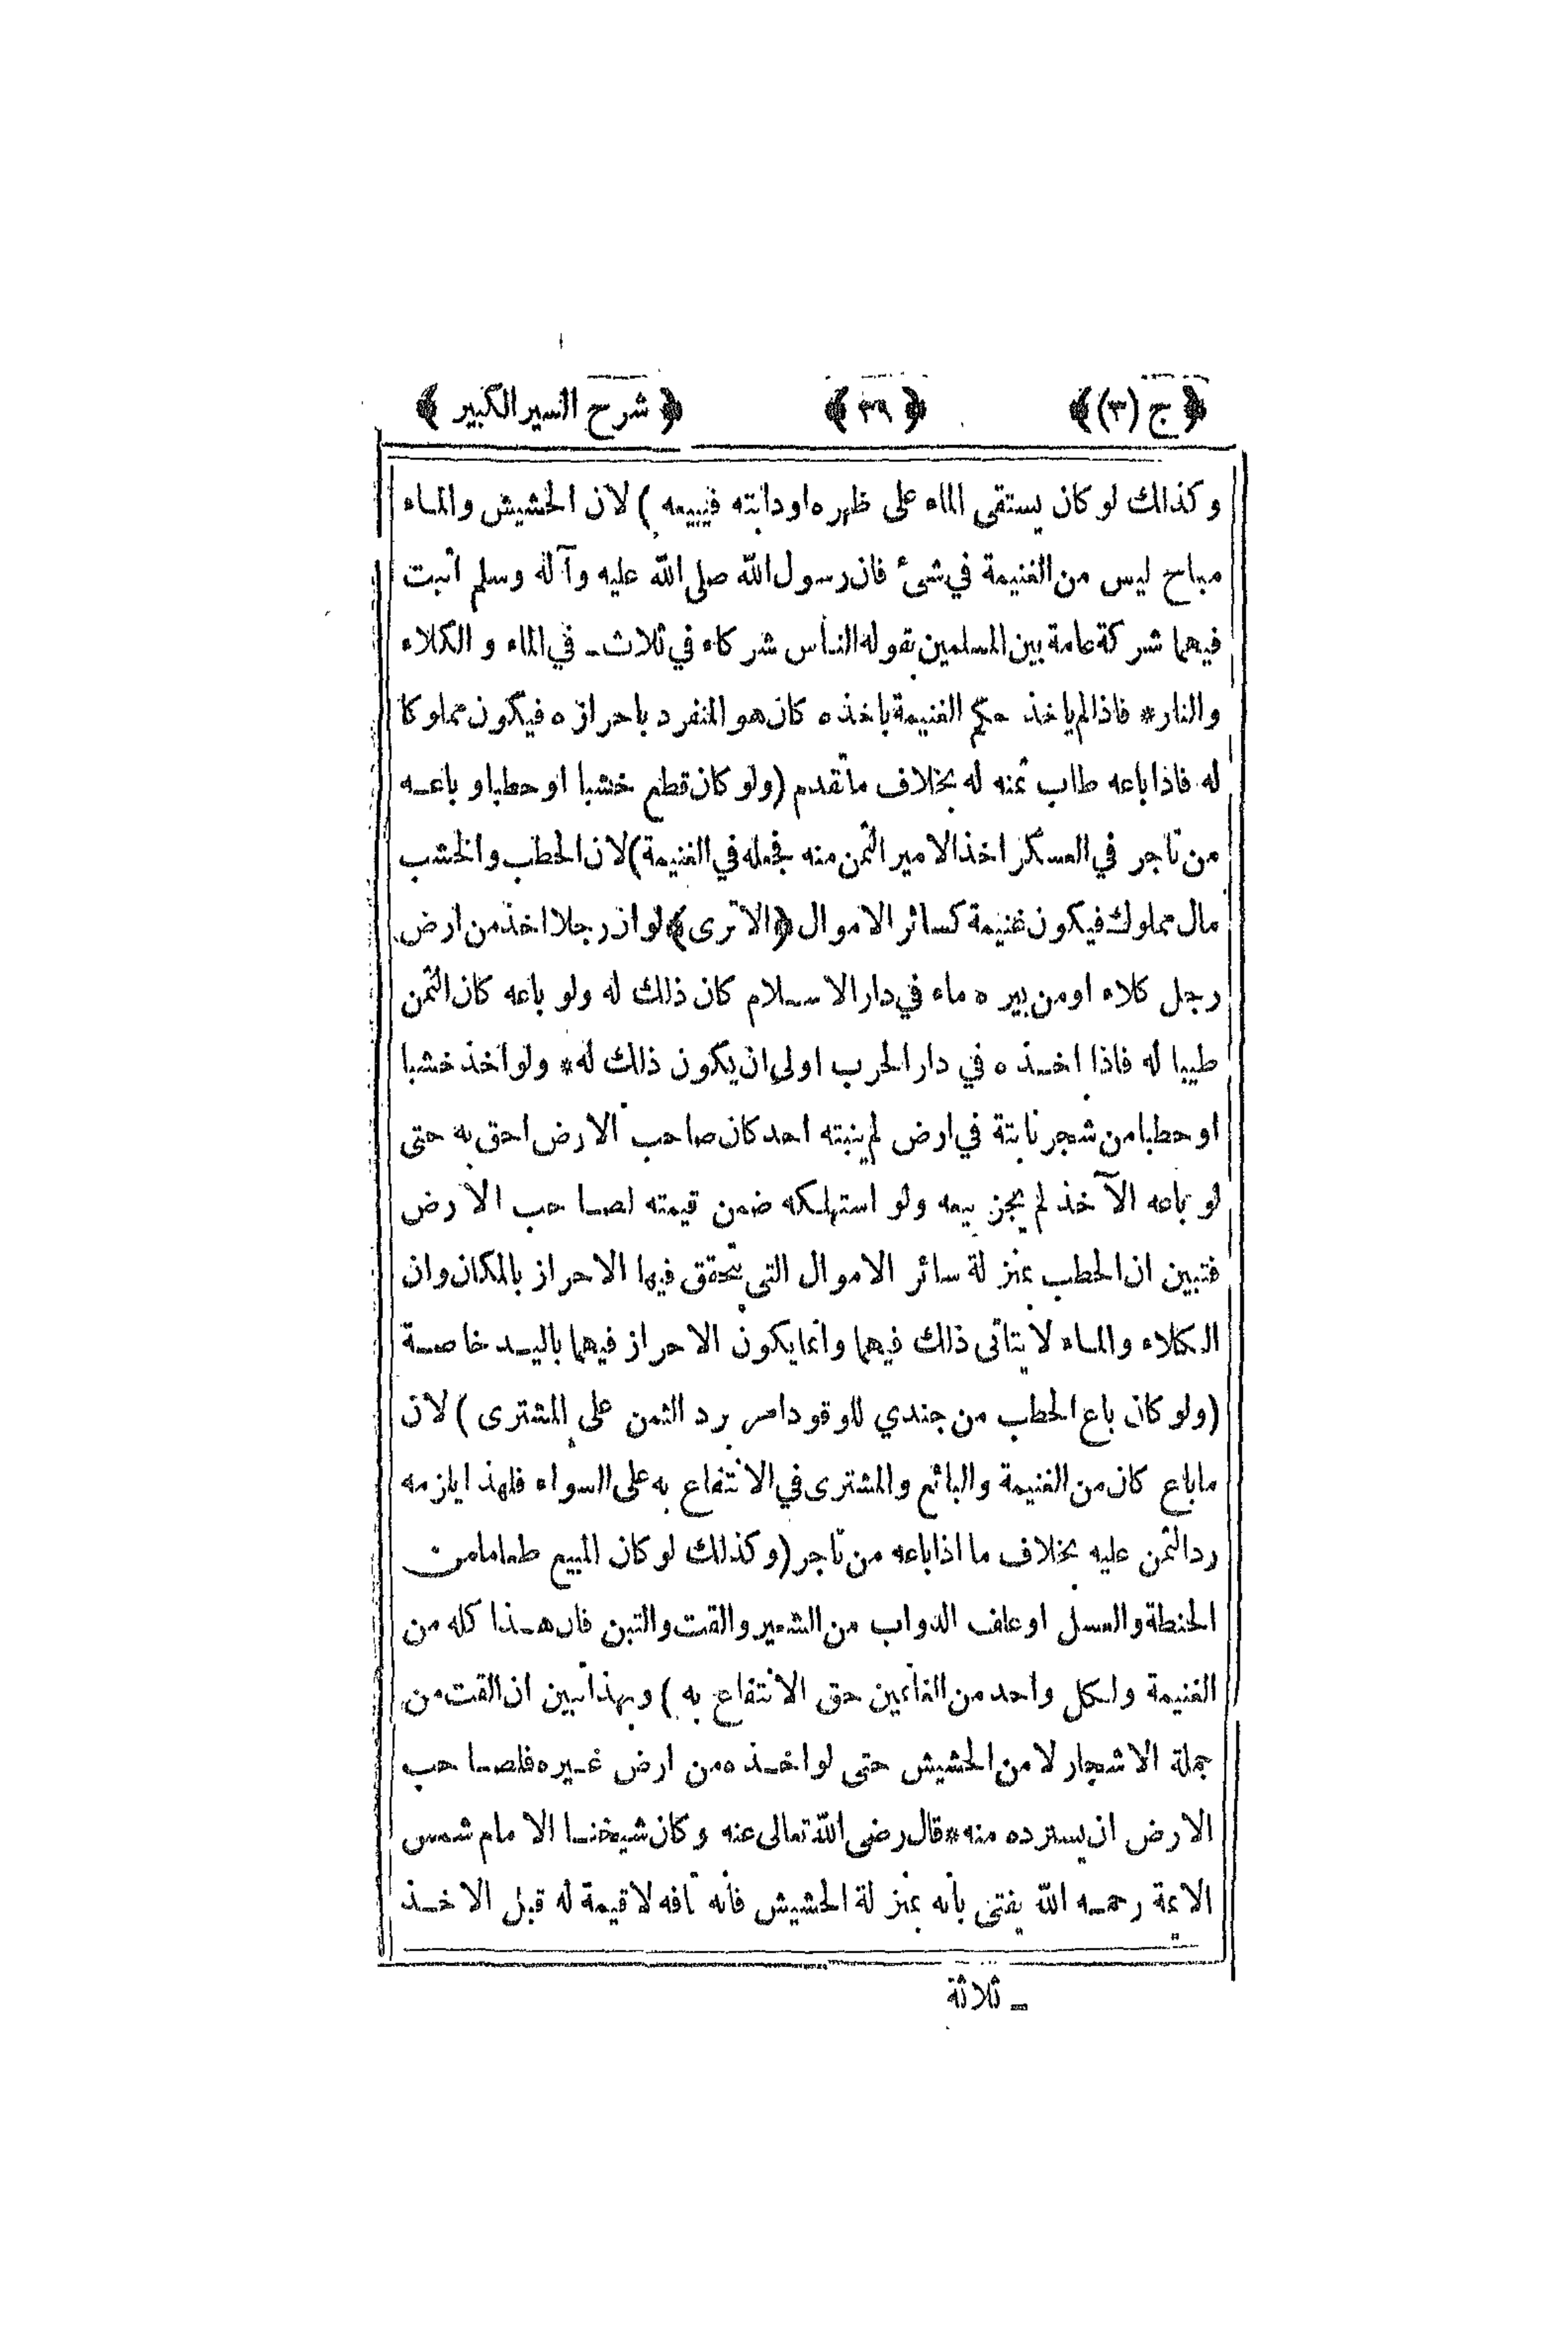 ﴿ ج (٣) ﴾ ﴿ ٣٩ ﴾ ﴿ شرح السير الكبير ﴾
وكذالك لو كان يستقى الماء على ظهره او دابته فيبيعه ) لان الحشيش والماء
مباح ليس من الغنيمة في شئ فان رسول الله صلى الله عليه وآله وسلم اثبت
فيهما شركة عامة بين المسلمين بقوله الناس شركاء في ثلاث ـ في الماء و الكلاء
والنار * فاذا لم ياخذ حكم الغنيمة باخذه كان هو المنفرد باحرازه فيكون مملوكا
له فاذا باعه طاب ثمنه له بخلاف ما تقدم (ولو كان قطع خشبا او حطبا و باعه
من تاجر في العسكر اخذ الامير الثمن منه فجعله في الغنيمة) لان الحطب و الخشب
مال مملوك فيكون غنيمة كسائر الاموال ﴿ الا ترى ﴾ لو ان رجلا اخذ من ارض
رجل كلاء او من بيره ماء في دار الاسلام كان ذلك له ولو باعه كان الثمن
طيبا له فاذا اخذه في دار الحرب اولى ان يكون ذلك له * ولو اخذ خشبا
او حطبا من شجر نابتة في ارض لم ينبته احد كان صاحب الارض احق به حتى
لو باعه الآخذ لم يجز بيعه ولو استهلكه ضمن قيمته لصاحب الارض
فتبين ان الحطب بمنزلة سائر الاموال التي يتحقق فيها الاحراز بالمكان وان
الكلاء والماء لا يتاتى ذلك فيهما وانما يكون الاحراز فيهما باليد خاصة
(ولو كان باع الحطب من جندي للوقود امر برد الثمن على المشترى ) لان
ما باع كان من الغنيمة والبائع والمشترى في الانتفاع به على السواء فلهذا يلزمه
رد الثمن عليه بخلاف ما اذا باعه من تاجر (وكذلك لو كان المبيع طعاما من
الحنطة والعسل او علف الدواب من الشعير والقت والتبن فان هذا كله من
الغنيمة ولكل واحد من الغانمين حق الانتفاع به ) وبهذا تبين ان القت من
جملة الاشجار لا من الحشيش حتى لو اخذه من ارض غيره فلصاحب
الارض ان يسترده منه * قال رضى الله تعالى عنه وكان شيخنا الامام شمس
الائمة رحمه الله يفتى بانه بمنزلة الحشيش فانه تافه لا قيمة له قبل الاخذ
ـ ثلاثة